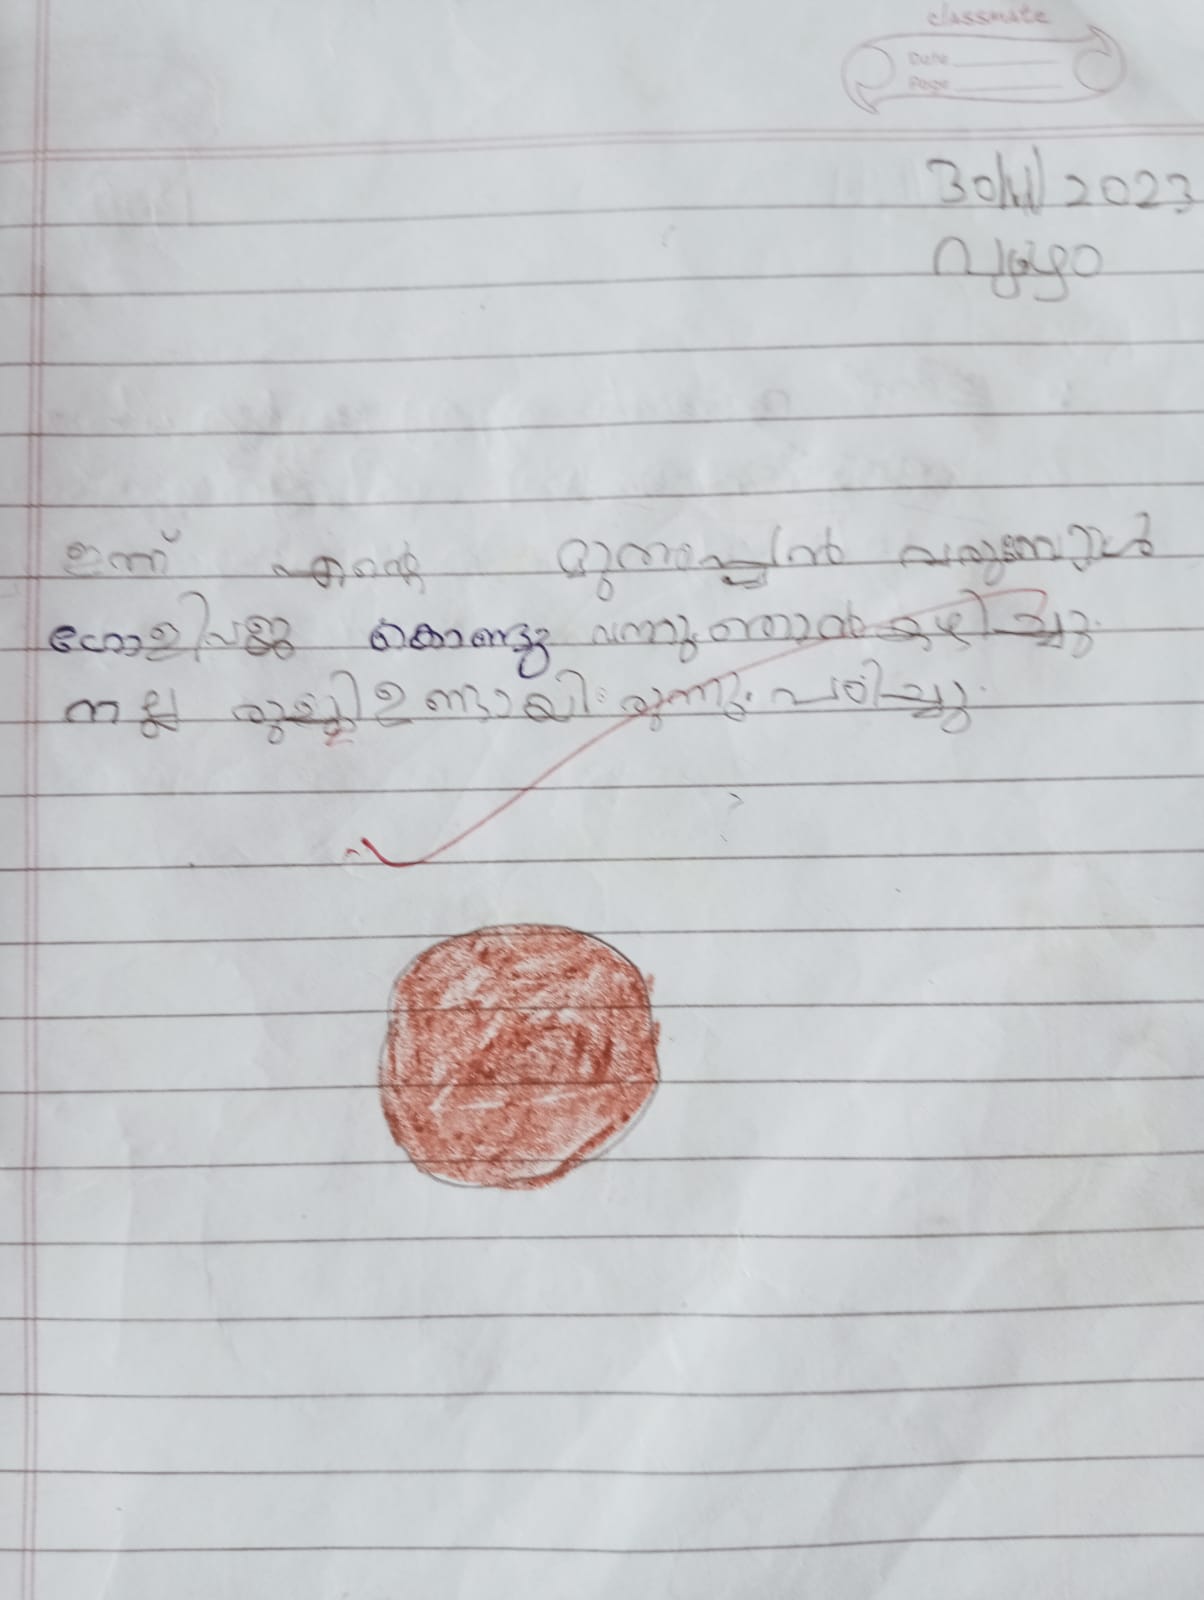 classmate
Date
Page
30/11/2023
വ്യാഴം
ഇന്ന് എന്റെ മൂത്താപ്പ വരുമ്പോൾ
ഹോളിപൂള കൊണ്ടു വന്നു. ഞാൻ കഴിച്ചു.
നല്ല രുച്ചി ഉണ്ടായിരുന്നു. പഠിച്ചു.